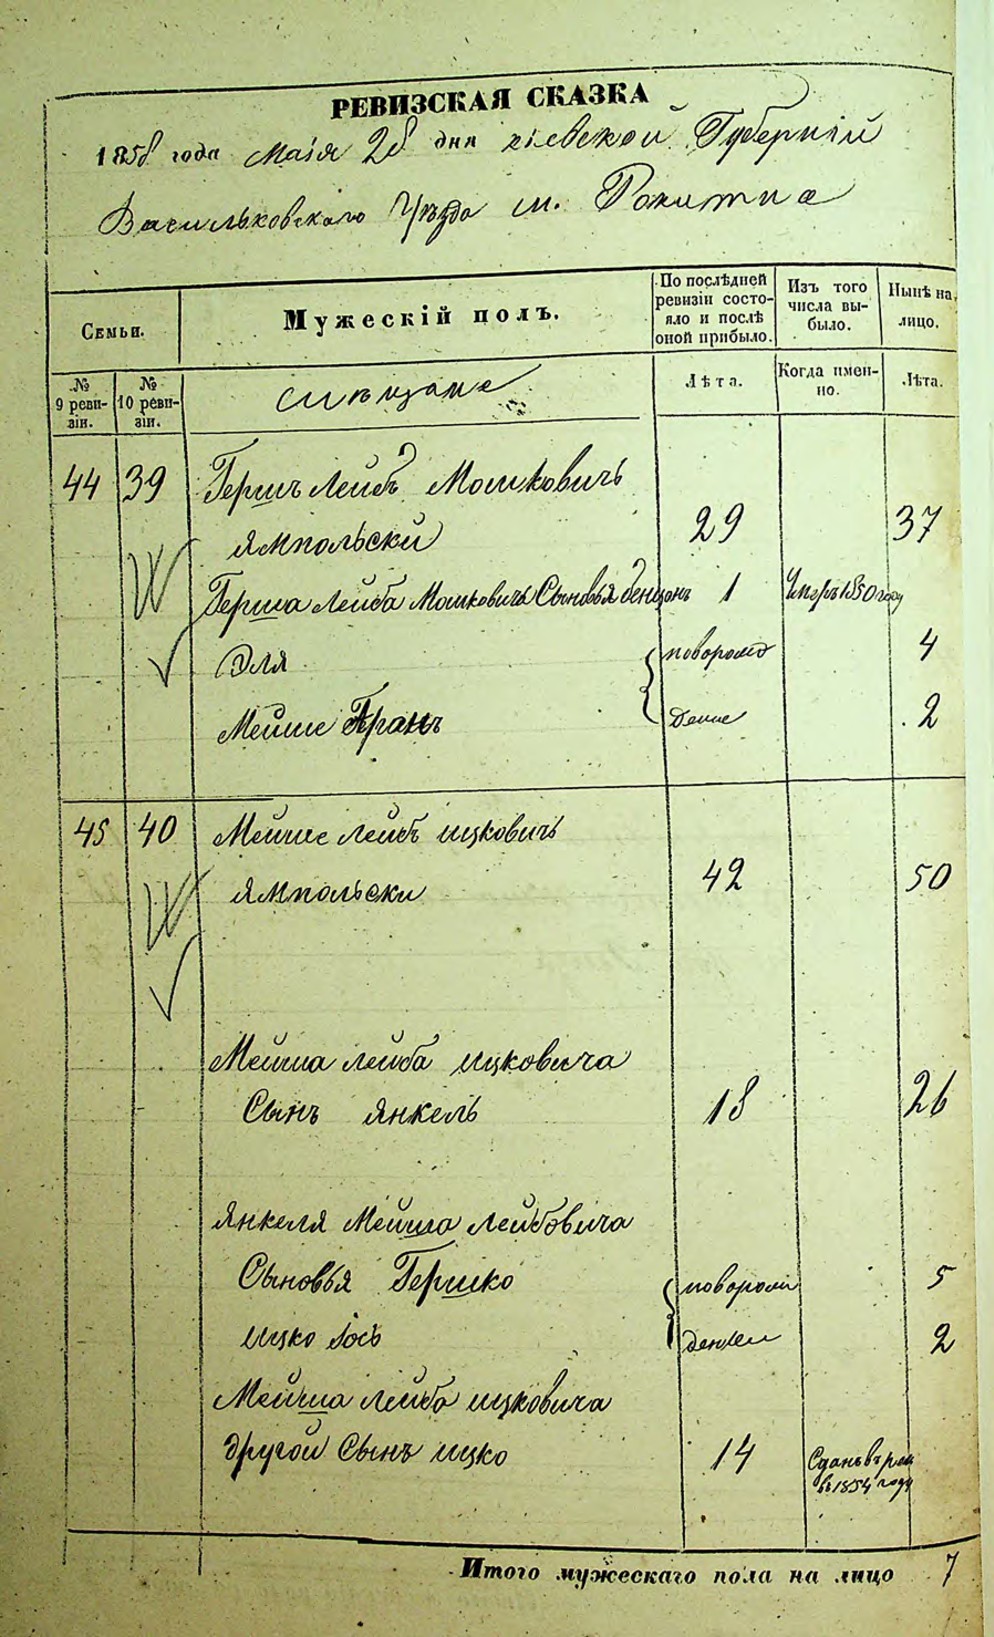 РЕВИЗСКАЯ СКАЗКА
1858 года маія 28 дня кіевской Губерніи
Васильковскаго Уѣзда м. Рокитна
Семьи.
Мужескій полъ.
По послѣдней ревизіи состояло и послѣ оной прибыло.
Изъ того числа выбыло.
Нынѣ на лицо.
№ 9 ревизіи.
№ 10 ревизіи.
мѣщане
Лѣта.
Когда именно.
Лѣта.
44 39 Гершъ Лейбъ Мошковичъ
ямпольски 29 37
Герша Лейба Мошковича Сыновья бенционъ 1 Умеръ 1850 году
Эля 4
Мейше 2
45 40 Мейше лейбъ ицковичъ
ямпольски 42 50
Мейша лейба ицковича
Сынъ янкель 18 26
янкеля Мейша Лейбовича
Сыновья Гершко 5
ицко Іось 2
Мейша лейба ицковича
другой Сынъ ицко 14 Сданъ в рек
въ 1854 году
Итого мужескаго пола на лицо 7